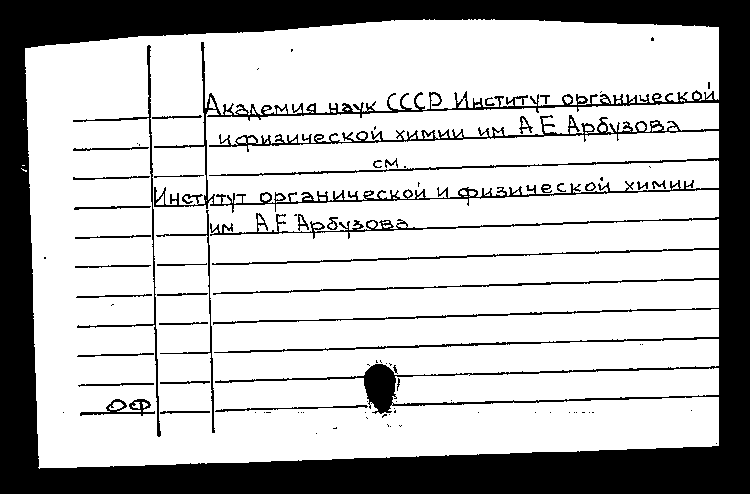 Академия наук СССР Институт органической
и физической химии им А.Е. Арбузова
см.
Институт органической и физической химии
им. А.Е Арбузова.
ОФ